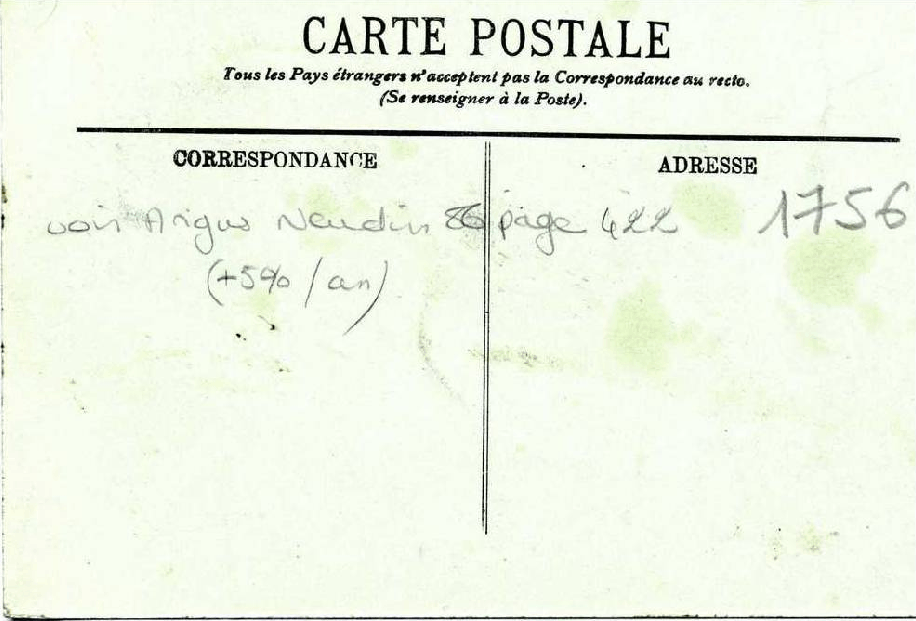 CARTE POSTALE
Tous les Pays étrangers n'acceptent pas la Correspondance au recto.
(Se renseigner à la Poste).
CORRESPONDANCE
ADRESSE
voir Argus Neudin 86 page 422 1756
(+5% / an)